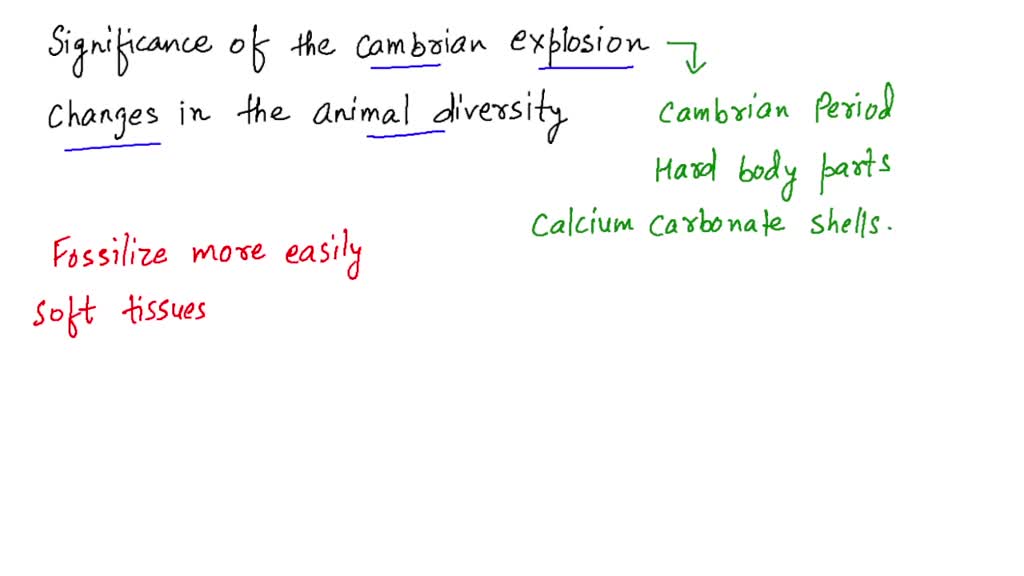 Significance of the cambrian explosion
changes in the animal diversity
Cambrian Period
Hard body parts
Calcium Carbonate shells.
Fossilize more easily
soft tissues